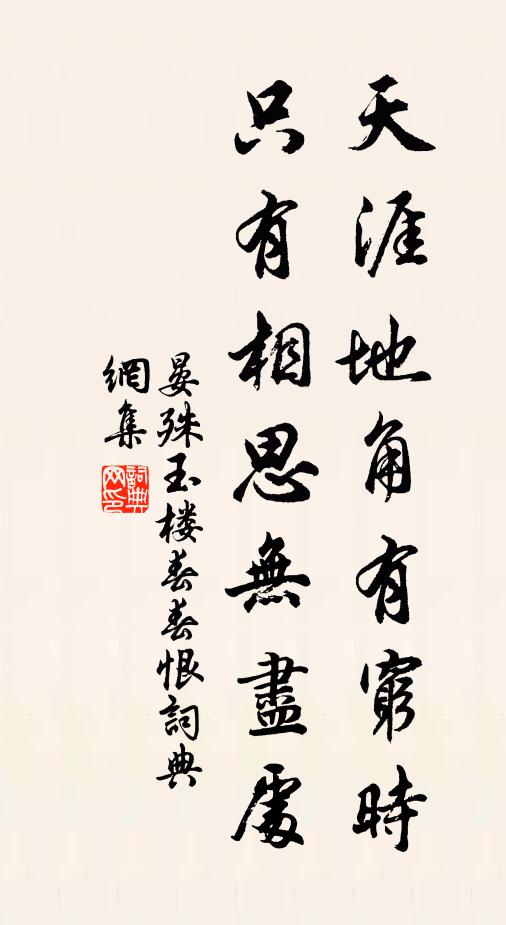 天涯地角有窮時
只有相思無盡處
晏殊玉楼春春恨詞典
網集
詞典網印